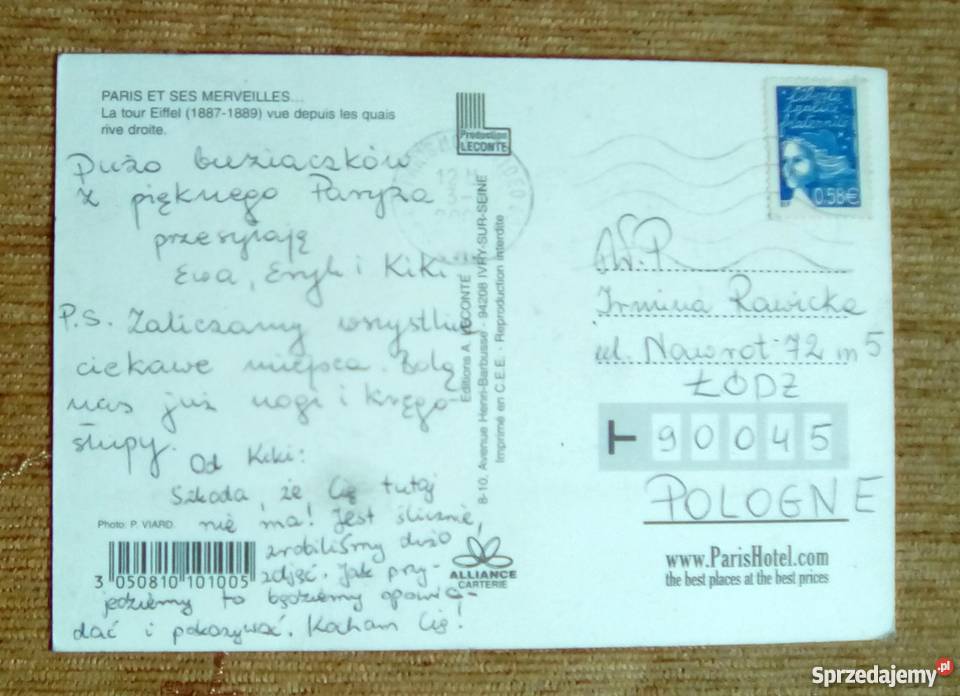 PARIS ET SES MERVEILLES...
La tour Eiffel (1887-1889) vue depuis les quais
rive droite.
Production
LECONTE
Dużo buziaczków
z pięknego Paryża
przesyłają
Ewa, Eryk i Kiki
P.S. Zaliczamy wszystkie
ciekawe miejsca. Bolą
nas już nogi i kręgo-
słupy.
Od Kiki:
Szkoda, że Cię tutaj
nie ma! Jest ślicznie,
zrobiliśmy dużo
zdjęć. Jak przy-
jedziemy to będziemy opowia-
dać i pokazywać. Kocham Cię!
Photo: P. VIARD.
3 050810 101005
Editions A. LECONTE
8-10, Avenue Henri-Barbusse - 94208 IVRY-SUR-SEINE
Imprimé en C.E.E. - Reproduction interdite
ALLIANCE
CARTERIE
Liberté
égalité
fraternité
0,58€
W.P.
Irmina Rawicka
ul. Nawrot 72 m 5
ŁÓDZ
90045
POLOGNE
www.ParisHotel.com
the best places at the best prices
Sprzedajemy.pl